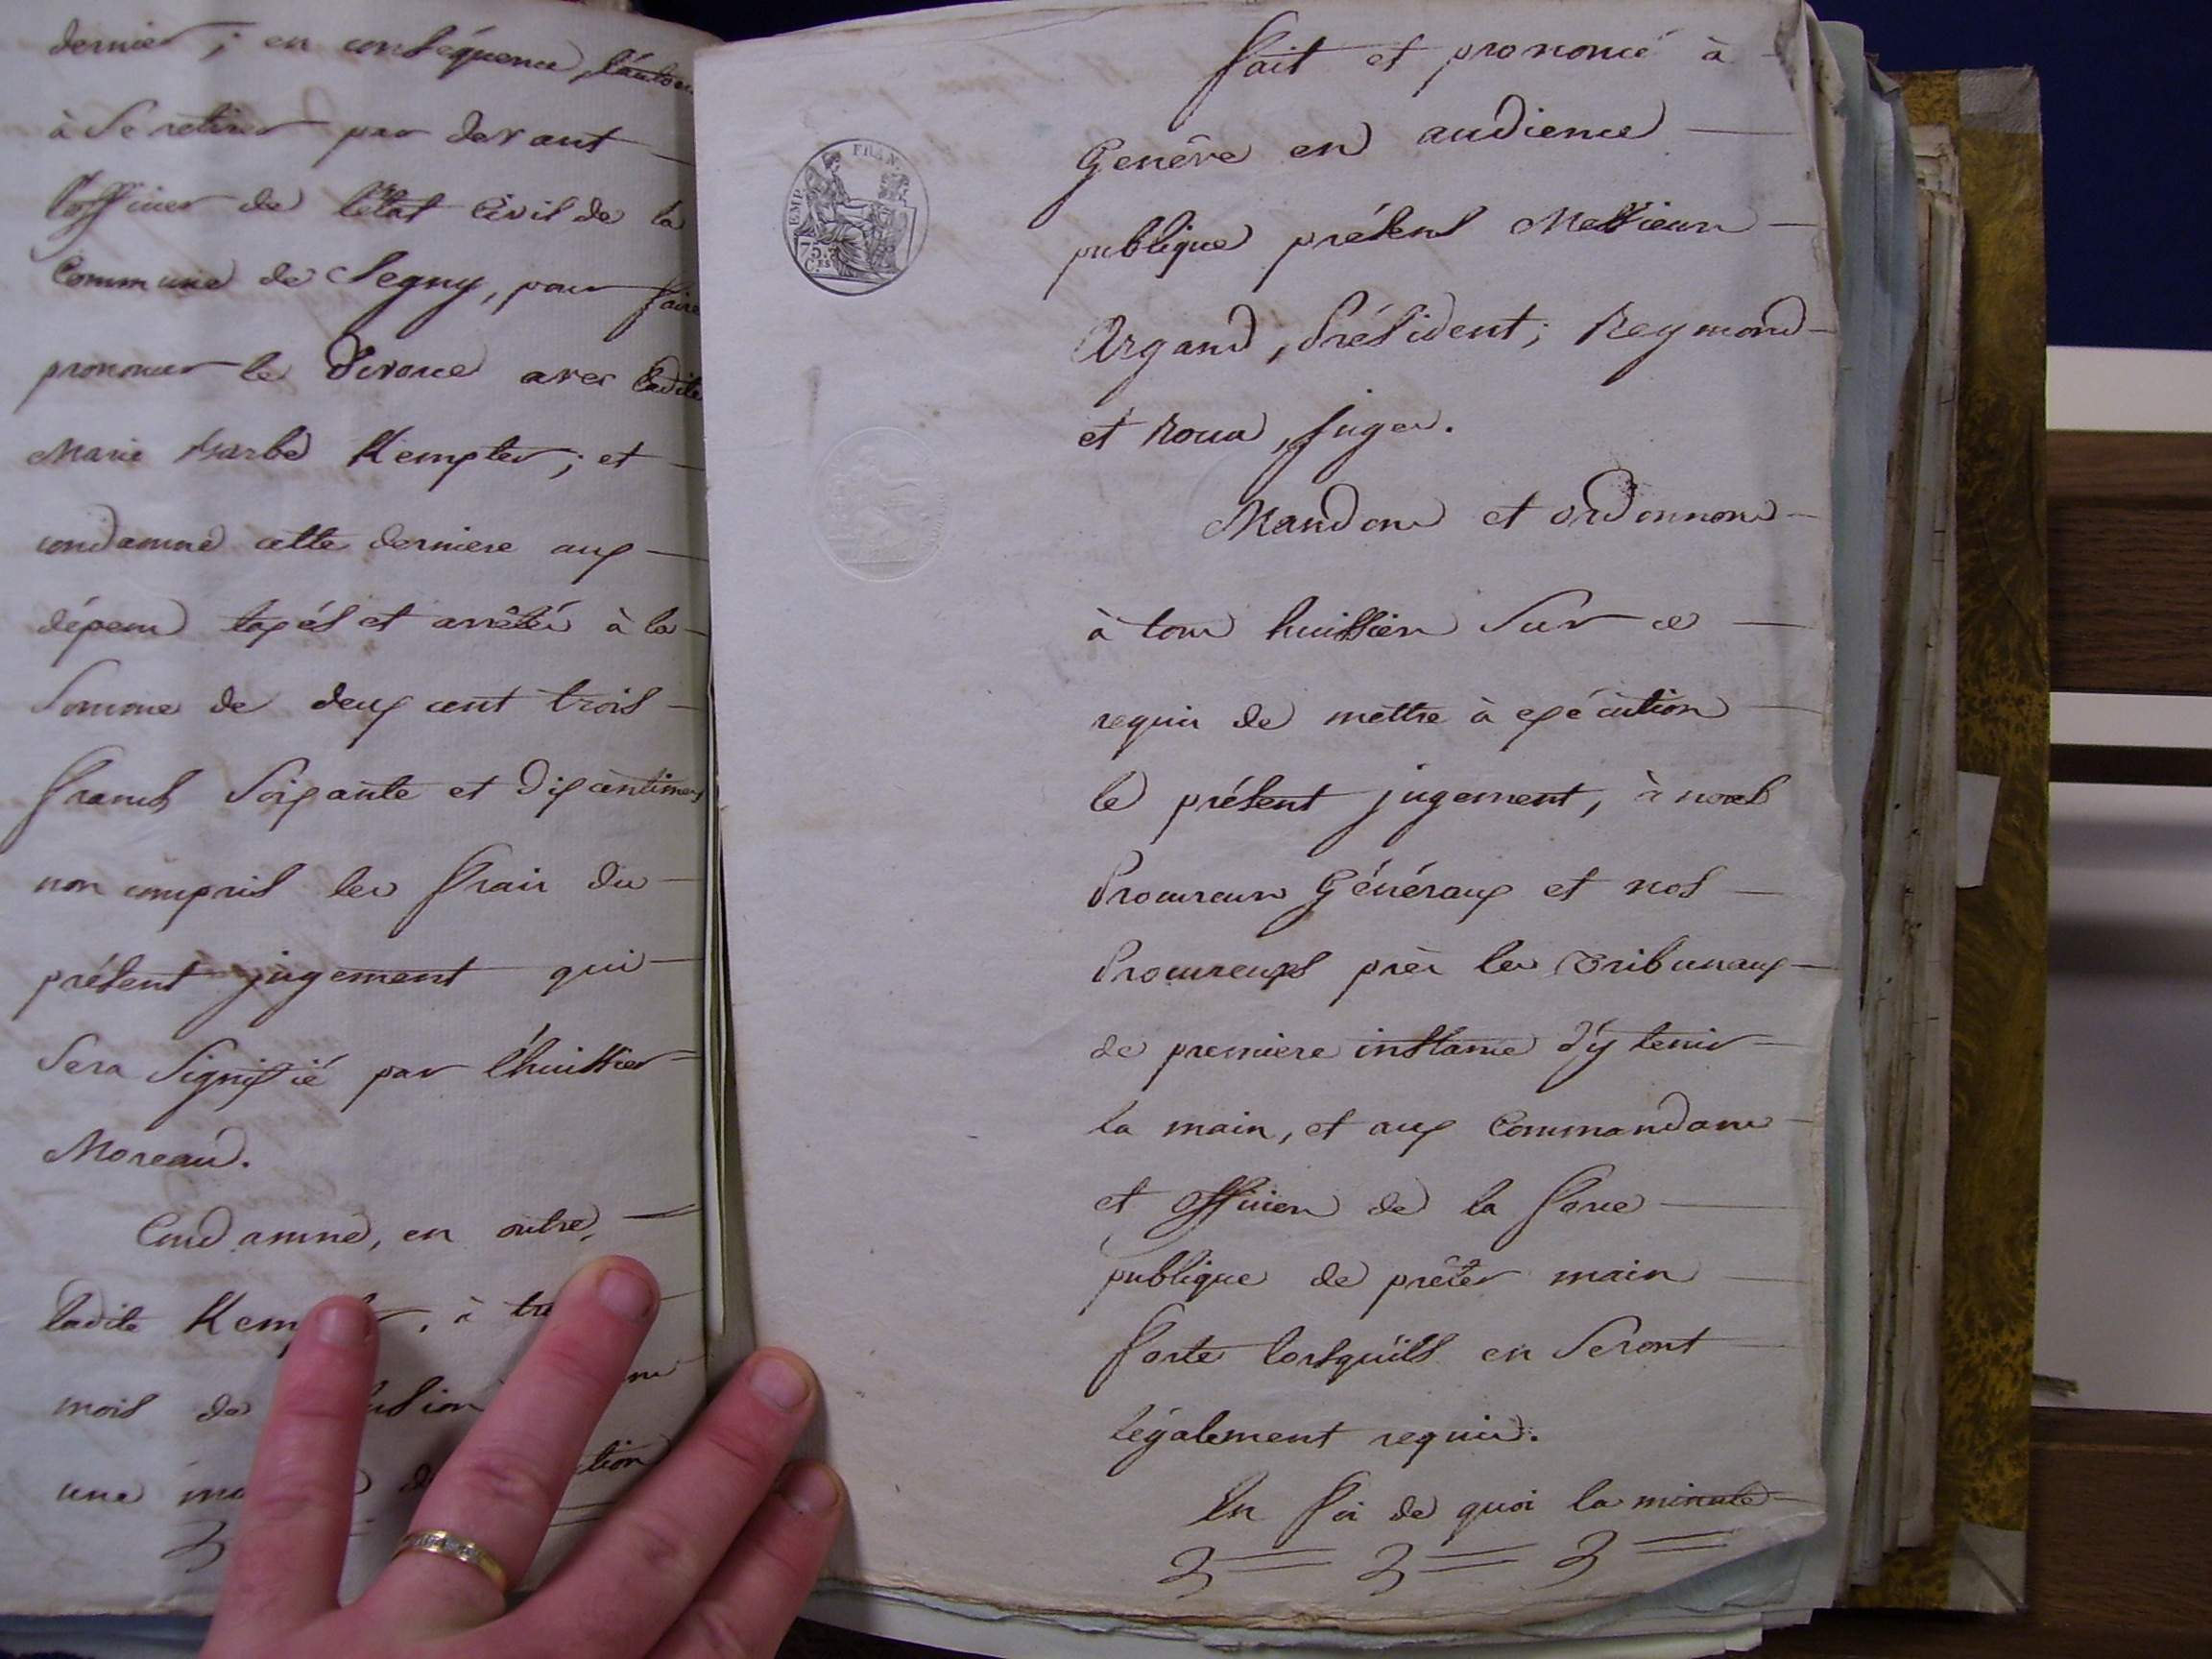 dernier ; en conséquence, l'autor
à se retirer par devant
l'officier de l'état Civil de la
Commune de Segny, pour faire
prononcer le Divorce avec ladite
Marie Barbe Kempter ; et
condamne cette derniere aux
dépens taxés et arrêtés à la
Somme de deux cent trois
francs Soixante et dix centimes
non compris les frais du
présent jugement qui
Sera Signifié par l'huissier
Moreau.
Condamne, en outre,
ladite Kem , à
mois de usion
une de tion
FRAN.
EMP.
75.
C.ES
fait et prononcé à
Genêve en audience
publique présens Messieurs
Argand, Président ; Reymond
et Roua, Juges.
Mandons et ordonnons
à tous huissiers Sur ce
requis de mettre à exécution
le présent jugement, à nos
Procureurs Généraux et nos
Procureurs près les Tribunaux
de premiere instance d'y tenir
la main, et aux Commandans
et officiers de la force
publique de prêter main
forte lorsqu'ils en Seront
légalement requis.
En foi de quoi la minute